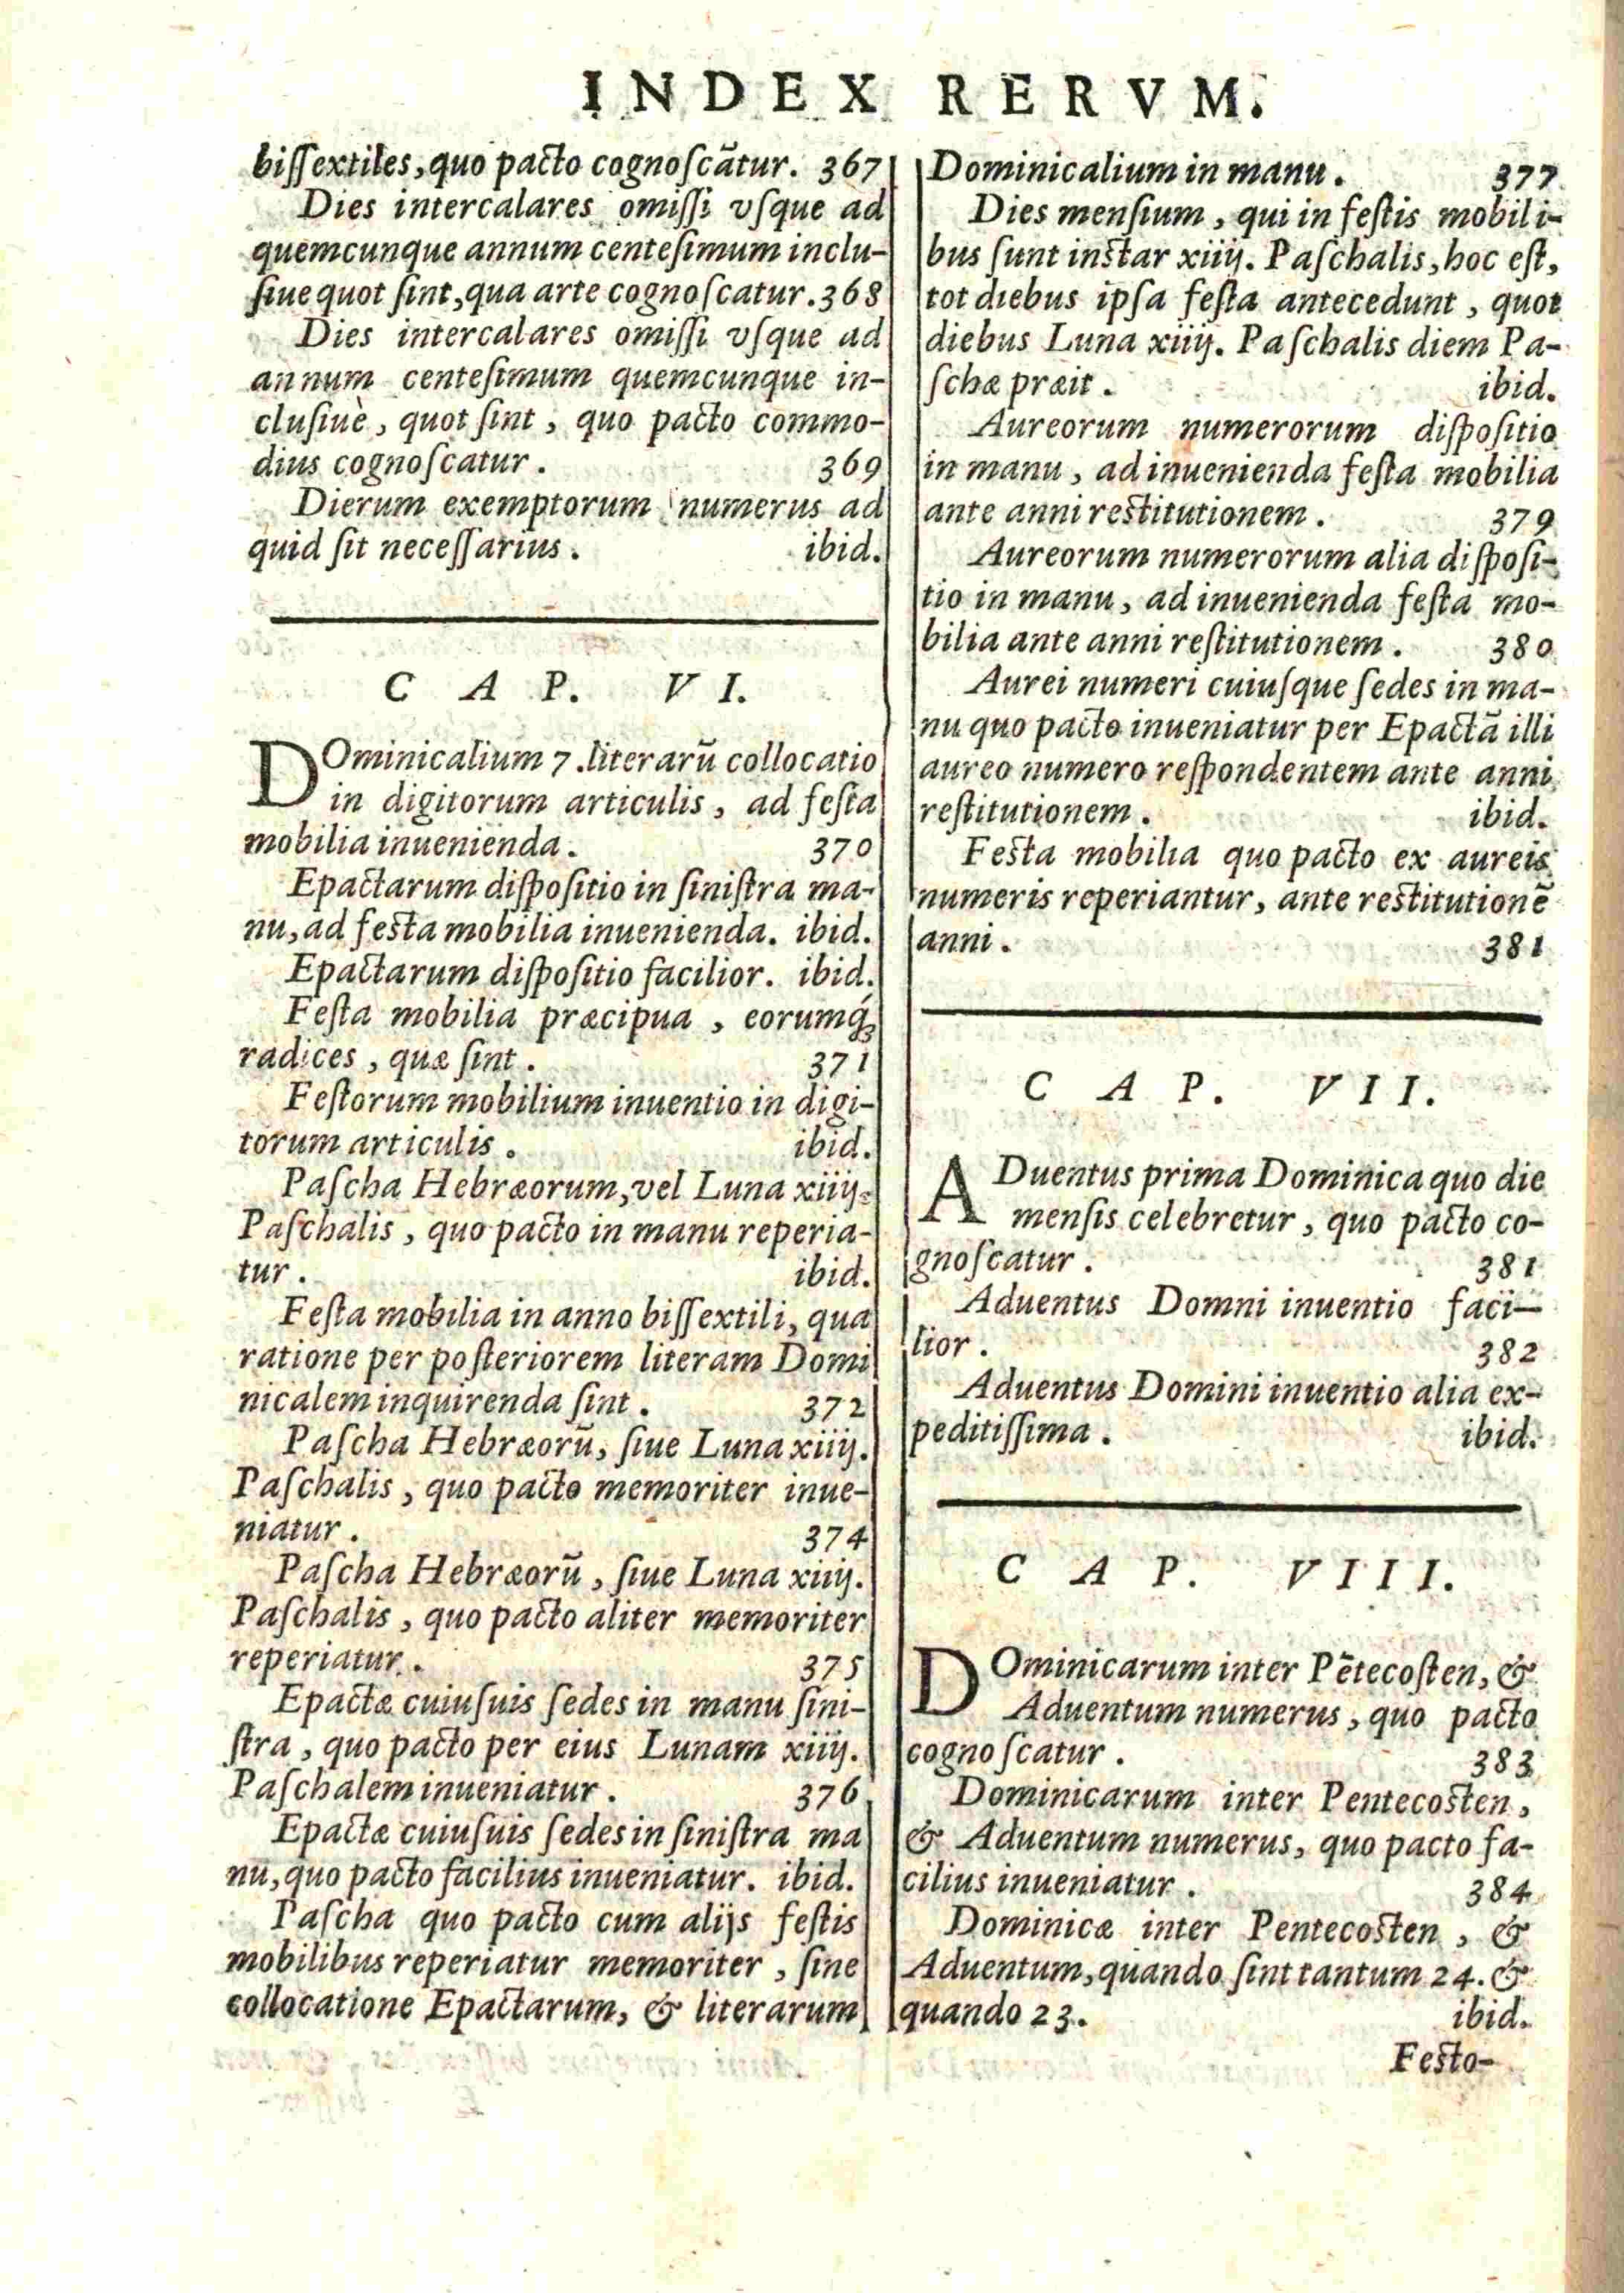 INDEX RERVM.
biſſextiles, quo pacto cognoſcātur. 367
Dies intercalares omiſſi vſque ad
quemcunque annum centeſimum inclu-
ſiue quot ſint, qua arte cognoſcatur. 368
Dies intercalares omiſſi vſque ad
annum centeſimum quemcunque in-
cluſiuè, quot ſint, quo pacto commo-
dius cognoſcatur. 369
Dierum exemptorum numerus ad
quid ſit neceſſarius. ibid.
CAP. VI.
DOminicalium 7. literarū collocatio
in digitorum articulis, ad feſta
mobilia inuenienda. 370
Epactarum diſpoſitio in ſiniſtra ma-
nu, ad feſta mobilia inuenienda. ibid.
Epactarum diſpoſitio facilior. ibid.
Feſta mobilia præcipua, eorumq́;
radices, quæ ſint. 371
Feſtorum mobilium inuentio in digi-
torum articulis. ibid.
Paſcha Hebræorum, vel Luna xiiij.
Paſchalis, quo pacto in manu reperia-
tur. ibid.
Feſta mobilia in anno biſſextili, qua
ratione per poſteriorem literam Domi
nicalem inquirenda ſint. 372
Paſcha Hebræorū, ſiue Luna xiiij.
Paſchalis, quo pacto memoriter inue-
niatur. 374
Paſcha Hebræorū, ſiue Luna xiiij.
Paſchalis, quo pacto aliter memoriter
reperiatur. 375
Epactæ cuiuſuis ſedes in manu ſini-
ſtra, quo pacto per eius Lunam xiiij.
Paſchalem inueniatur. 376
Epactæ cuiuſuis ſedes in ſiniſtra ma
nu, quo pacto facilius inueniatur. ibid.
Paſcha quo pacto cum alijs feſtis
mobilibus reperiatur memoriter, ſine
collocatione Epactarum, & literarum
Dominicalium in manu. 377
Dies menſium, qui in feſtis mobili-
bus ſunt inſtar xiiij. Paſchalis, hoc eſt,
tot diebus ipſa feſta antecedunt, quot
diebus Luna xiiij. Paſchalis diem Pa-
ſchæ præit. ibid.
Aureorum numerorum diſpoſitio
in manu, ad inuenienda feſta mobilia
ante anni reſtitutionem. 379
Aureorum numerorum alia diſpoſi-
tio in manu, ad inuenienda feſta mo-
bilia ante anni reſtitutionem. 380
Aurei numeri cuiuſque ſedes in ma-
nu quo pacto inueniatur per Epactā illi
aureo numero reſpondentem ante anni
reſtitutionem. ibid.
Feſta mobilia quo pacto ex aureis
numeris reperiantur, ante reſtitutionē
anni. 381
CAP. VII.
ADuentus prima Dominica quo die
menſis celebretur, quo pacto co-
gnoſcatur. 381
Aduentus Domni inuentio faci-
lior. 382
Aduentus Domini inuentio alia ex-
peditiſſima. ibid.
CAP. VIII.
DOminicarum inter Pētecoſten, &
Aduentum numerus, quo pacto
cognoſcatur. 383
Dominicarum inter Pentecoſten,
& Aduentum numerus, quo pacto fa-
cilius inueniatur. 384
Dominicæ inter Pentecoſten, &
Aduentum, quando ſint tantum 24. &
quando 23. ibid.
Feſto-